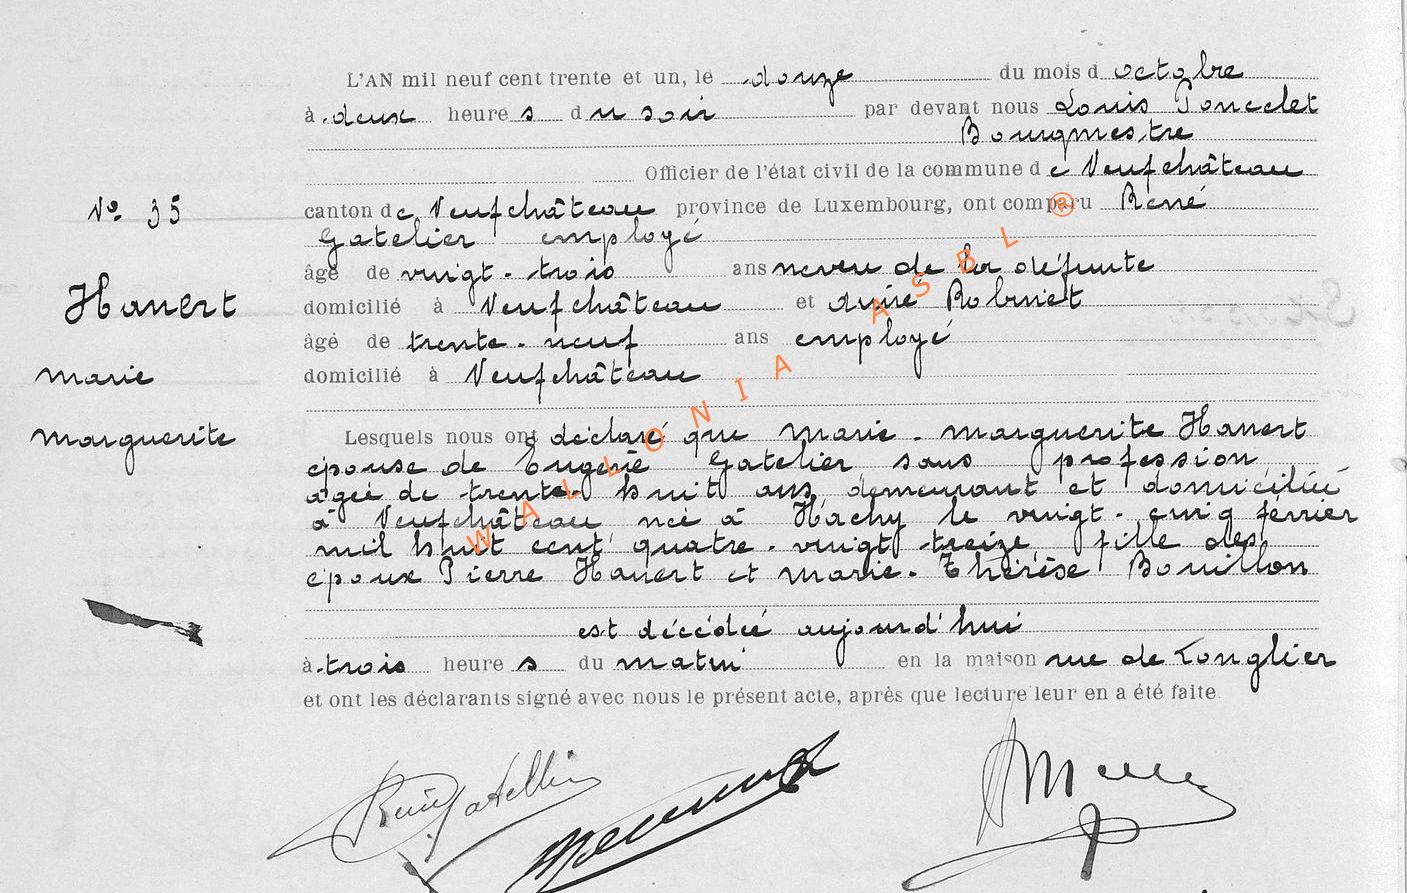 L'AN mil neuf cent trente et un, le douze du mois d octobre
à deux heures du soir par devant nous Louis Poncelet
Bourgmestre
Officier de l'état civil de la commune de Neufchâteau
N° 35
canton de Neufchâteau province de Luxembourg, ont comparu René
Gatelier employé
âgé de vingt-trois ans neveu de la défunte
Hanert
domicilié à Neufchâteau et Robinet
âgé de trente-neuf ans employé
marie
domicilié à Neufchâteau
marguerite
Lesquels nous ont déclaré que marie-marguerite Hanert
épouse de Eugène Gatelier sans profession
âgée de trente-huit ans, demeurant et domiciliée
à Neufchâteau née à Hachy le vingt-cinq février
mil huit cent quatre-vingt treize, fille des
époux Pierre Hanert et marie-Thérèse Bouillon
est décédée aujourd'hui
à trois heures du matin en la maison rue de Longlier
et ont les déclarants signé avec nous le présent acte, après que lecture leur en a été faite
WALLONIA ASBL ®